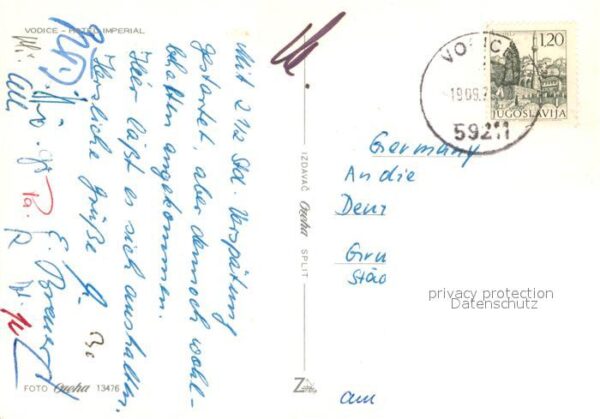 VODICE - HOTEL IMPERIAL
Mit 2 1/2 Std. Verspätung
gestartet, aber dennoch wohl-
behalten angekommen.
Hier läßt es sich aushalten.
Herzliche Grüße
E. Brewer
FOTO 13476
IZDAVAČ SPLIT
VODIC
19 09 7
59211
1,20
JUGOSLAVIJA
Germany
An die
privacy protection
Datenschutz
am